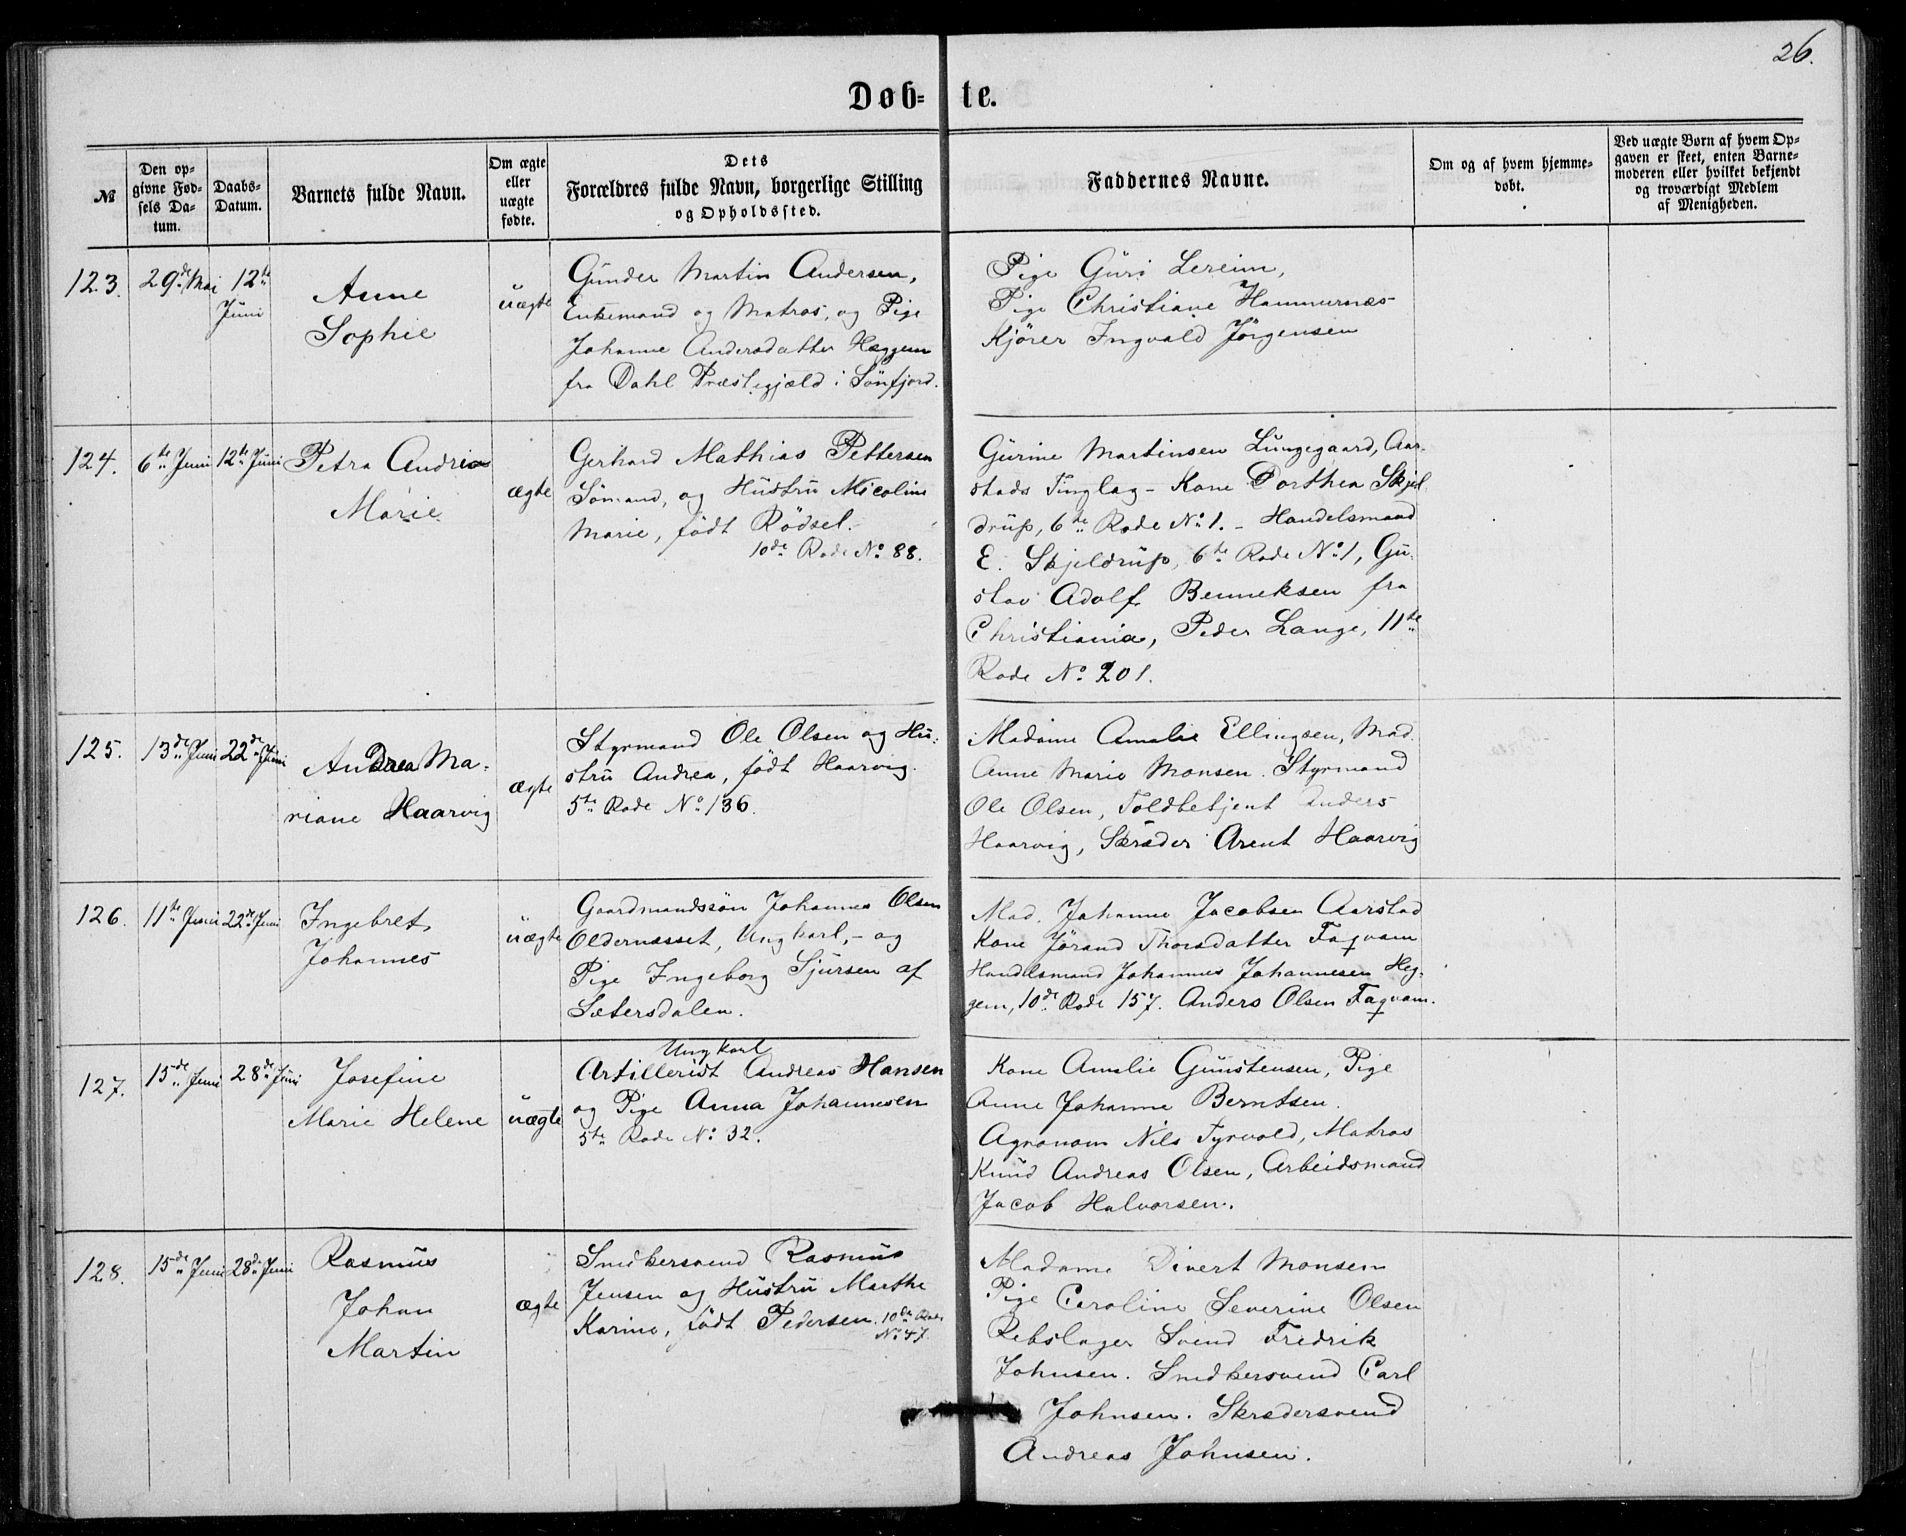 26.
Døb- te.
№
Den op-
givne Fød-
sels Da-
tum.
Daabs-
Datum.
Barnets fulde Navn.
Om ægte
eller
uægte
fødte.
Dets
Forældres fulde Navn, borgerlige Stilling
og Opholdssted.
Faddernes Navne.
Om og af hvem hjemme-
døbt.
Ved uægte Børn af hvem Op-
gaven er skeet, enten Barne-
moderen eller hvilket bekjendt
og troværdigt Medlem
af Menigheden.
123.
29de Mai
12te
Juni
Anne
Sophie
uægte
Gunder Martin Andersen,
Enkemand og Matros, og Pige
Johanne Andersdatter Heggem
fra Dahl Præstegjæld i Sönfjord.
Pige Guri Lereim,
Pige Christiane Hammernæs
Kjörer Ingvald Jörgensen
124.
6te Juni
12te Juni
Petra Andrea
Marie
ægte
Gerhard Mathias Pettersen
Sömand, og Hustru Nicoline
Marie, født Rödsel.
10de Rode No. 88.
Gurine Martinsen Lungegaard, Aar-
stads Tinglag - Kone Dorthea Skjel
drup, 6te Rode No. 1. - Handelsmand
E. Skjeldrup, 6te Rode No. 1, Gu-
stav Adolf Benneksen fra
Christiania, Peder Lange, 11te
Rode No. 201.
125.
13de Juni
22de Juni
Andrea Ma-
riane Haarvig
ægte
Styrmand Ole Olsen og Hu-
stru Andrea, født Haarvig.
5te Rode No. 136.
Madame Amalie Ellingsen, Mad.
Anne Marie Monsen. Styrmand
Ole Olsen, Toldbetjent Anders
Haarvig, Skræder Arent Haarvig
126.
11te Juni
22de Juni
Ingebret
Johannes
uægte
Gaardmandssön Johannes Olsen
Oldernæsset, Ungkarl, - og
Pige Ingeborg Sjursen af
Sætersdalen.
Mad. Johanne Jacobsen Aarstad
Kone Jörand Thorsdatter Faqvam
Handelsmand Johannes Johannesen Heg-
gem, 10de Rode 157. Anders Olsen Faqvam.
127.
15de Juni
28de Juni
Josefine
Marie Helene
uægte
Ungkarl
Artillerist Andreas Hansen
og Pige Anna Johannesen
5te Rode No. 32.
Kone Amalie Gunstensen, Pige
Anne Johanne Berntsen.
Agronom Nils Tyrvold, Matros
Knud Andreas Olsen, Arbeidsmand
Jacob Halvorsen.
128.
15de Juni
28de Juni
Rasmus
Johan
Martin
ægte
Snedkersvend Rasmus
Jensen og Hustru Marthe
Karine, født Pedersen. 10de Rode
No. 47
Madame Divert Monsen
Pige Caroline Severine Olsen
Rebslager Svend Fredrik
Johnsen. Snedkersvend Carl
Johnsen. Skrædersvend
Andreas Johnsen.